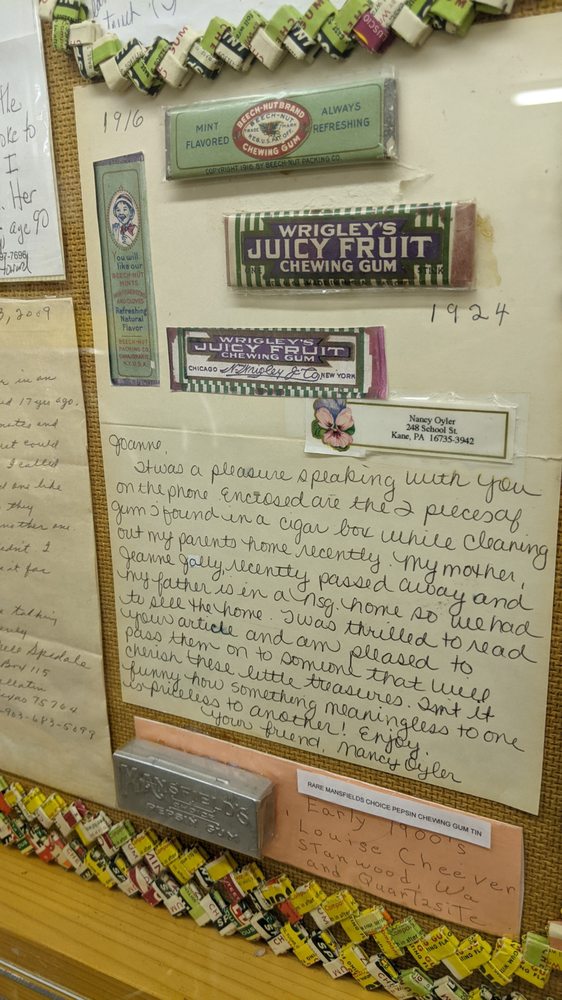 touch
1916
MINT
FLAVORED
BEECH-NUT BRAND
BEECH-NUT
TRADE MARK
REG. U.S. PAT. OFF.
CHEWING GUM
ALWAYS
REFRESHING
COPYRIGHT 1916 BY BEECH-NUT PACKING CO.
You will
like our
BEECH-NUT
MINTS
Refreshing
Natural
Flavor
BEECH-NUT
PACKING CO.
CANAJOHARIE
N.Y. U.S.A.
WRIGLEY'S
JUICY FRUIT
CHEWING GUM
1924
WRIGLEY'S
JUICY FRUIT
CHEWING GUM
CHICAGO Wm. Wrigley Jr. Co. NEW YORK
Nancy Oyler
248 School St.
Kane, PA 16735-3942
Joanne,
It was a pleasure speaking with you
on the phone. Enclosed are the 2 pieces of
gum I found in a cigar box while cleaning
out my parents home recently. My mother,
Jeanne Jolly, recently passed away and
my father is in a Nsg. home so we had
to sell the home. I was thrilled to read
your article and am pleased to
pass them on to someone that will
cherish these little treasures. Isnt it
funny how something meaningless to one
is priceless to another! Enjoy.
your friend, Nancy Oyler
MANSFIELD'S
CHOICE
PEPSIN GUM
RARE MANSFIELDS CHOICE PEPSIN CHEWING GUM TIN
Early 1900's
Louise Cheever
Stanwood, Wa
and Quartzsite
oke to
I
. Her
age 90
3, 2009
17 yrs ago.
could
I called
one like
they
another one
I
it for
talking
Box 115
75764
903-683-5099